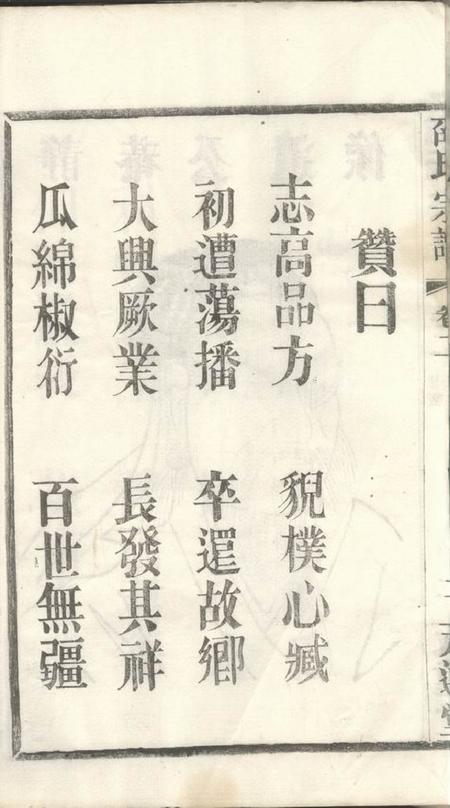 邵氏宗譜 卷二
贊曰
志高品方 貌樸心臧
初遭蕩播 卒還故鄉
大興厥業 長發其祥
瓜綿椒衍 百世無疆